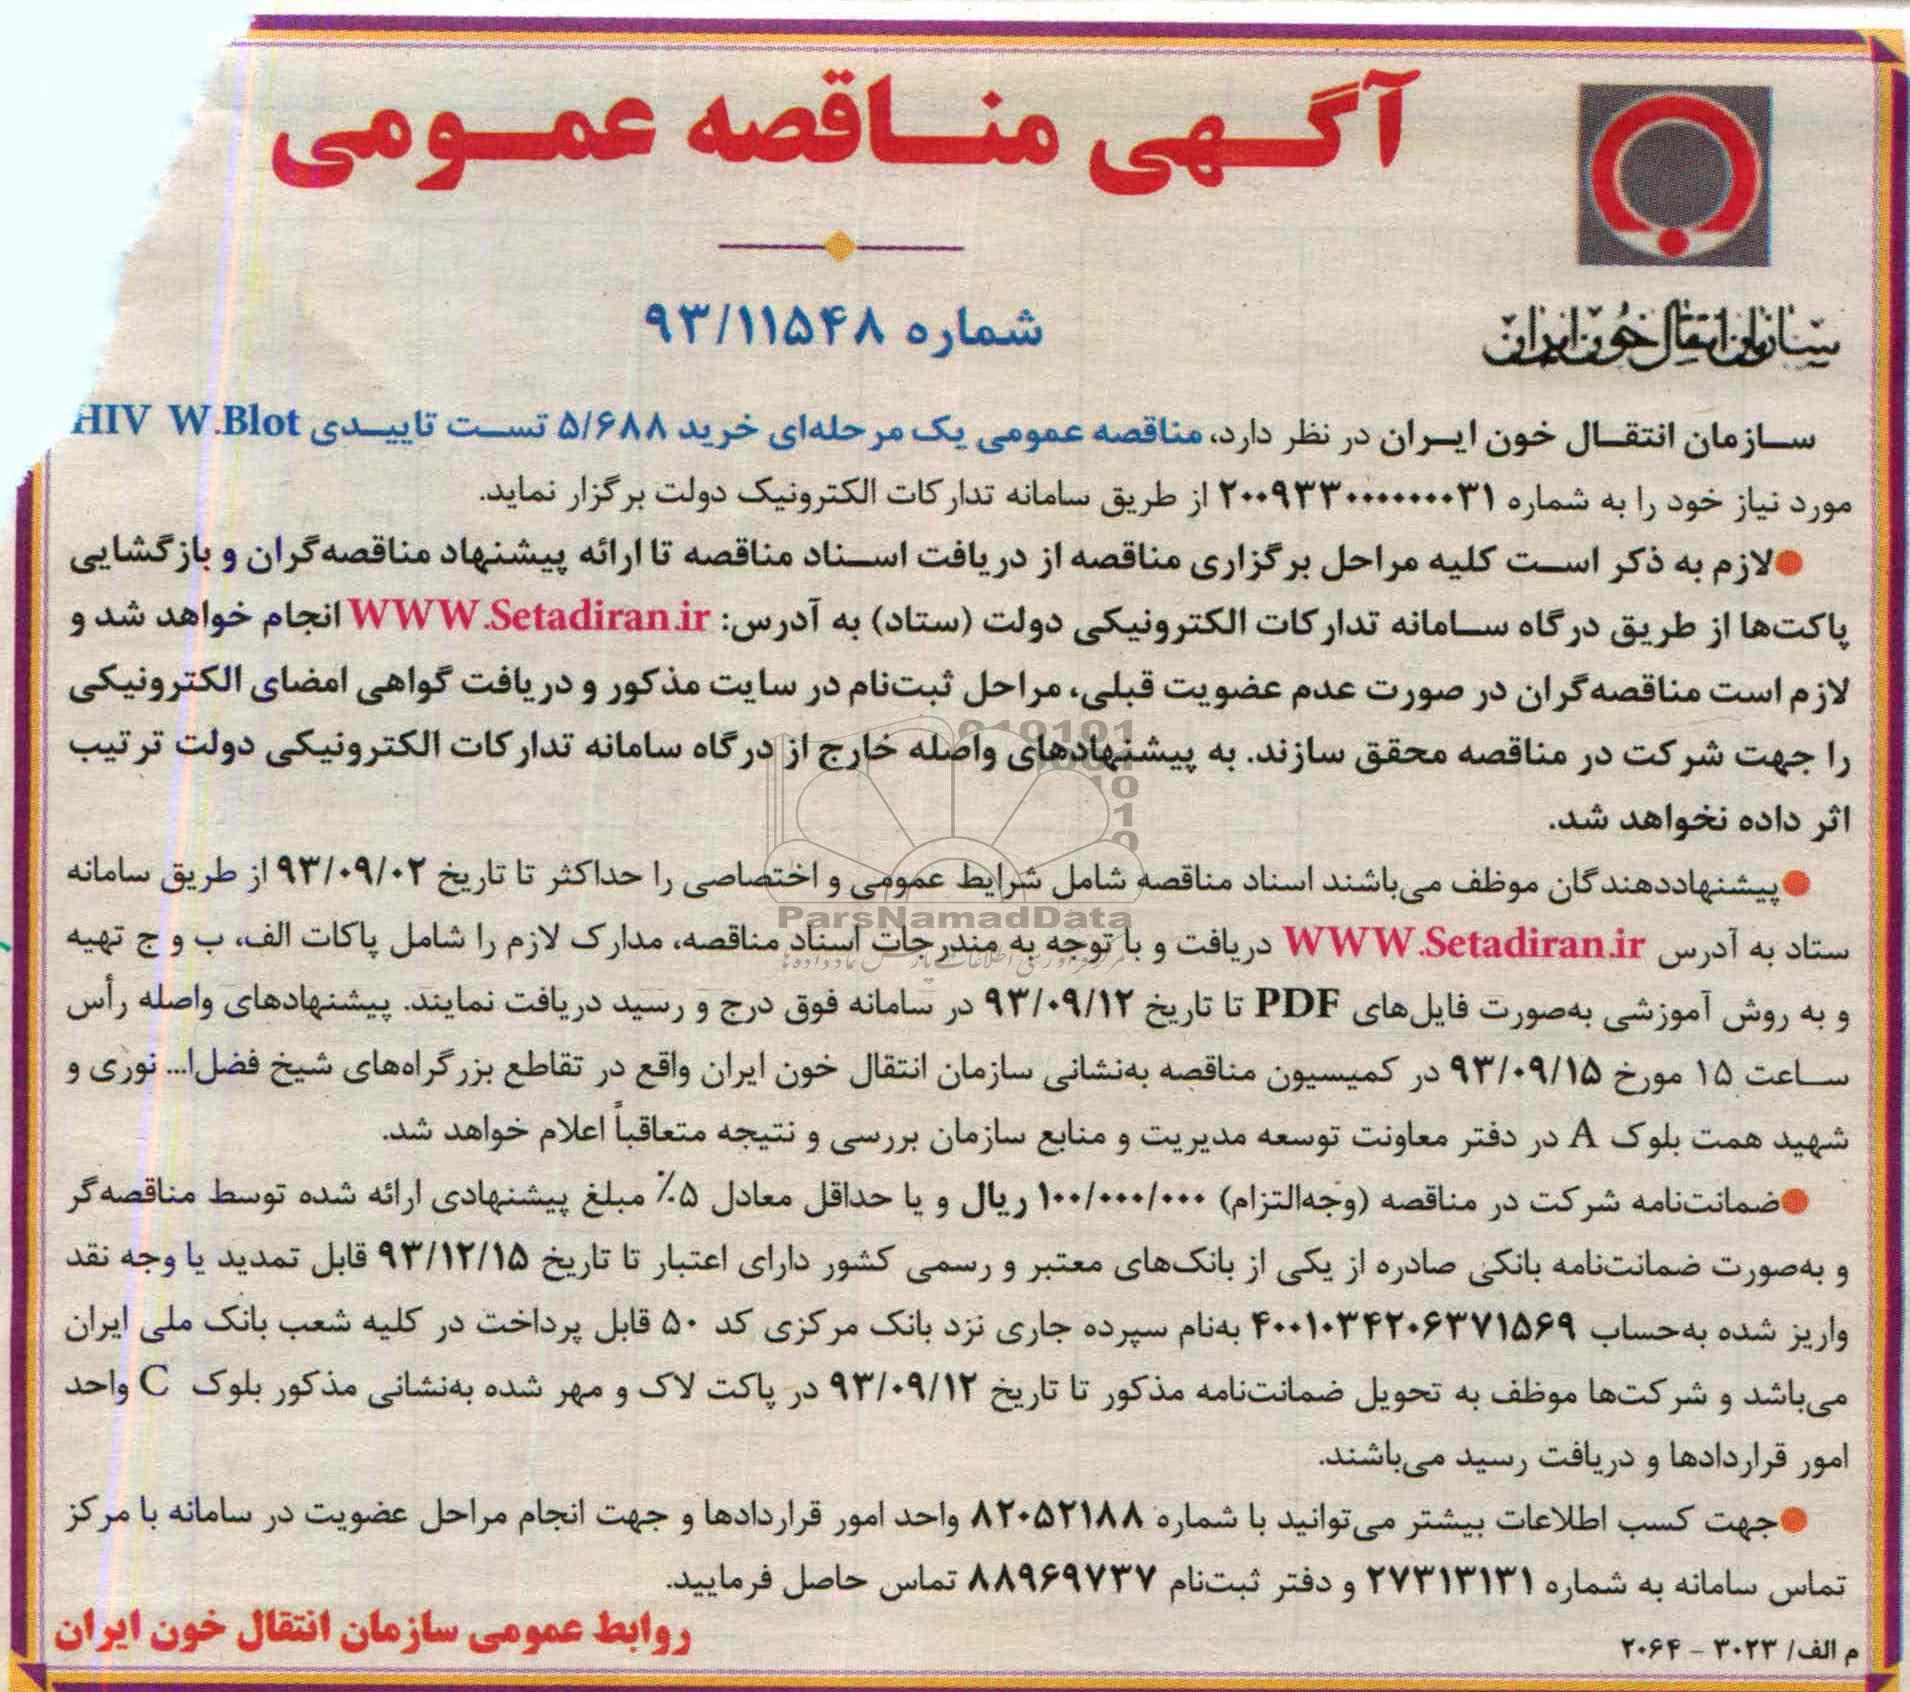 آگهی مناقصه عمومی
سازمان انتقال خون ایران
شماره ۹۳/۱۱۵۴۸
سازمان انتقال خون ایران در نظر دارد، مناقصه عمومی یک مرحله‌ای خرید ۵/۶۸۸ تست تاییدی HIV W.Blot
مورد نیاز خود را به شماره ۲۰۰۹۳۳۰۰۰۰۰۰۰۰۳۱ از طریق سامانه تدارکات الکترونیک دولت برگزار نماید.
●لازم به ذکر است کلیه مراحل برگزاری مناقصه از دریافت اسناد مناقصه تا ارائه پیشنهاد مناقصه‌گران و بازگشایی
پاکت‌ها از طریق درگاه سامانه تدارکات الکترونیکی دولت (ستاد) به آدرس: WWW.Setadiran.ir انجام خواهد شد و
لازم است مناقصه‌گران در صورت عدم عضویت قبلی، مراحل ثبت‌نام در سایت مذکور و دریافت گواهی امضای الکترونیکی
را جهت شرکت در مناقصه محقق سازند. به پیشنهادهای واصله خارج از درگاه سامانه تدارکات الکترونیکی دولت ترتیب
اثر داده نخواهد شد.
●پیشنهاددهندگان موظف می‌باشند اسناد مناقصه شامل شرایط عمومی و اختصاصی را حداکثر تا تاریخ ۹۳/۰۹/۰۲ از طریق سامانه
ParsNamadData
ستاد به آدرس WWW.Setadiran.ir دریافت و با توجه به مندرجات اسناد مناقصه، مدارک لازم را شامل پاکات الف، ب و ج تهیه
و به روش آموزشی به‌صورت فایل‌های PDF تا تاریخ ۹۳/۰۹/۱۲ در سامانه فوق درج و رسید دریافت نمایند. پیشنهادهای واصله رأس
ساعت ۱۵ مورخ ۹۳/۰۹/۱۵ در کمیسیون مناقصه به‌نشانی سازمان انتقال خون ایران واقع در تقاطع بزرگراه‌های شیخ فضل‌ا... نوری و
شهید همت بلوک A در دفتر معاونت توسعه مدیریت و منابع سازمان بررسی و نتیجه متعاقباً اعلام خواهد شد.
●ضمانت‌نامه شرکت در مناقصه (وجه‌التزام) ۱۰۰/۰۰۰/۰۰۰ ریال و یا حداقل معادل ۵٪ مبلغ پیشنهادی ارائه شده توسط مناقصه‌گر
و به‌صورت ضمانت‌نامه بانکی صادره از یکی از بانک‌های معتبر و رسمی کشور دارای اعتبار تا تاریخ ۹۳/۱۲/۱۵ قابل تمدید یا وجه نقد
واریز شده به‌حساب ۴۰۰۱۰۳۴۲۰۶۳۷۱۵۶۹ به‌نام سپرده جاری نزد بانک مرکزی کد ۵۰ قابل پرداخت در کلیه شعب بانک ملی ایران
می‌باشد و شرکت‌ها موظف به تحویل ضمانت‌نامه مذکور تا تاریخ ۹۳/۰۹/۱۲ در پاکت لاک و مهر شده به‌نشانی مذکور بلوک C واحد
امور قراردادها و دریافت رسید می‌باشند.
●جهت کسب اطلاعات بیشتر می‌توانید با شماره ۸۲۰۵۲۱۸۸ واحد امور قراردادها و جهت انجام مراحل عضویت در سامانه با مرکز
تماس سامانه به شماره ۲۷۳۱۳۱۳۱ و دفتر ثبت‌نام ۸۸۹۶۹۷۳۷ تماس حاصل فرمایید.
روابط عمومی سازمان انتقال خون ایران
م الف/ ۳۰۲۳ - ۲۰۶۴